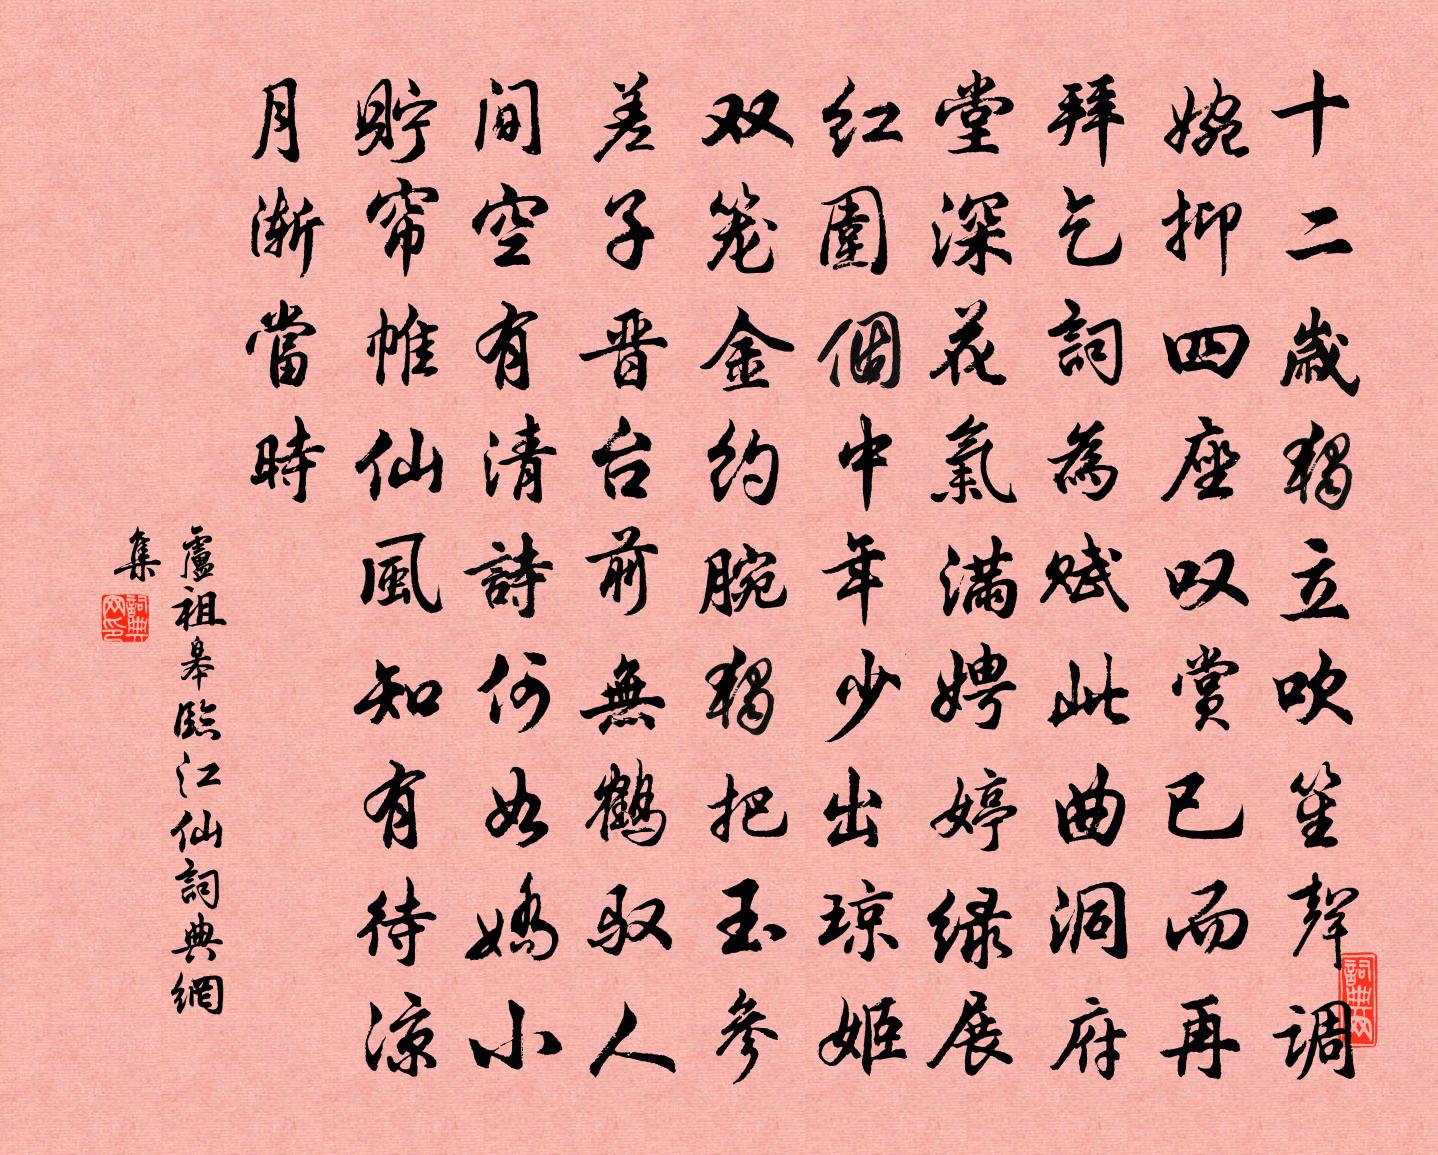 十二歲獨立吹笙聲調
婉抑四座叹賞已而再
拜乞詞為賦此曲洞府
堂深花氣滿娉婷綠展
紅圍個中年少出琼姬
双笼金约腕獨把玉參
差子晋台前無鶴驭人
间空有清詩何如嬌小
貯帘帷仙風知有待凉
月渐當時
盧祖皋臨江仙詞典網
集
詞典网
詞典网印